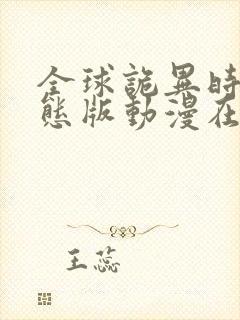 全球詭異時
態版動漫在
王蕊